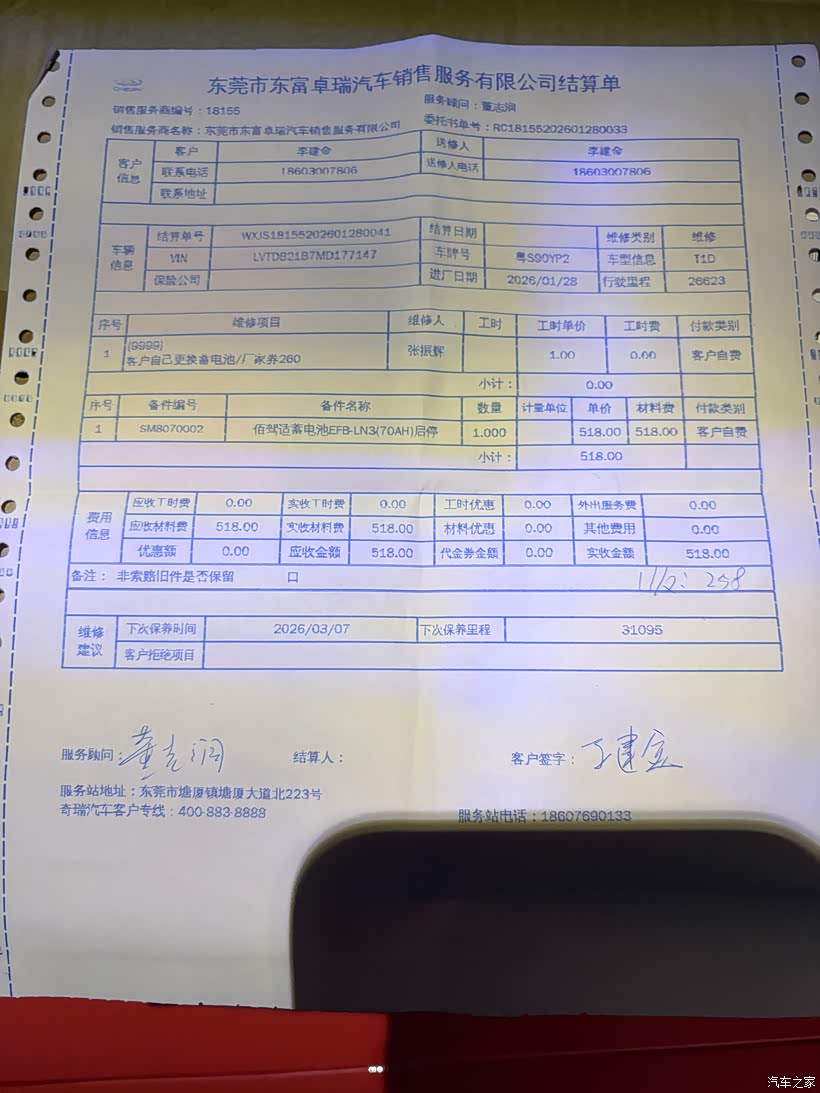 CHERY
东莞市东富卓瑞汽车销售服务有限公司结算单
销售服务商编号：18155 服务顾问：董志润
销售服务商名称：东莞市东富卓瑞汽车销售服务有限公司 委托书单号：RC18155202601280033
客户信息 客户 李建命 送修人 李建命
联系电话 18603007806 送修人电话 18603007806
联系地址
车辆信息 结算单号 WXJS18155202601280041 结算日期 维修类别 维修
VIN LVTDB21B7MD177147 车牌号 粤S90YP2 车型信息 T1D
保险公司 进厂日期 2026/01/28 行驶里程 26623
序号 维修项目 维修人 工时 工时单价 工时费 付款类别
1 (9999) 客户自己更换蓄电池/厂家券260 张振辉 1.00 0.00 客户自费
小计： 0.00
序号 备件编号 备件名称 数量 计量单位 单价 材料费 付款类别
1 SM8070002 佰驾适蓄电池EFB-LN3(70AH)启停 1.000 518.00 518.00 客户自费
小计： 518.00
费用信息 应收工时费 0.00 实收工时费 0.00 工时优惠 0.00 外出服务费 0.00
应收材料费 518.00 实收材料费 518.00 材料优惠 0.00 其他费用 0.00
优惠额 0.00 应收金额 518.00 代金券金额 0.00 实收金额 518.00
备注： 非索赔旧件是否保留 口 258
维修建议 下次保养时间 2026/03/07 下次保养里程 31095
客户拒绝项目
服务顾问：董志润 结算人： 客户签字：
服务站地址：东莞市塘厦镇塘厦大道北223号
奇瑞汽车客户专线：400-883-8888 服务站电话：18607690133
汽车之家